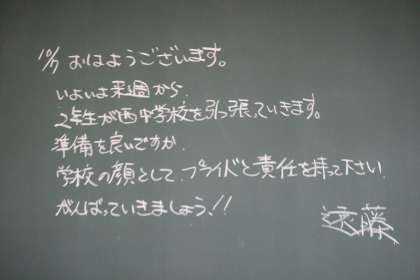 10/7 おはようございます。
いよいよ来週から、
2年生が西中学校を引っ張っていきます。
準備を良いですか
学校の顔として、プライドと責任を持って下さい
がんばっていきましょう!!
遠藤